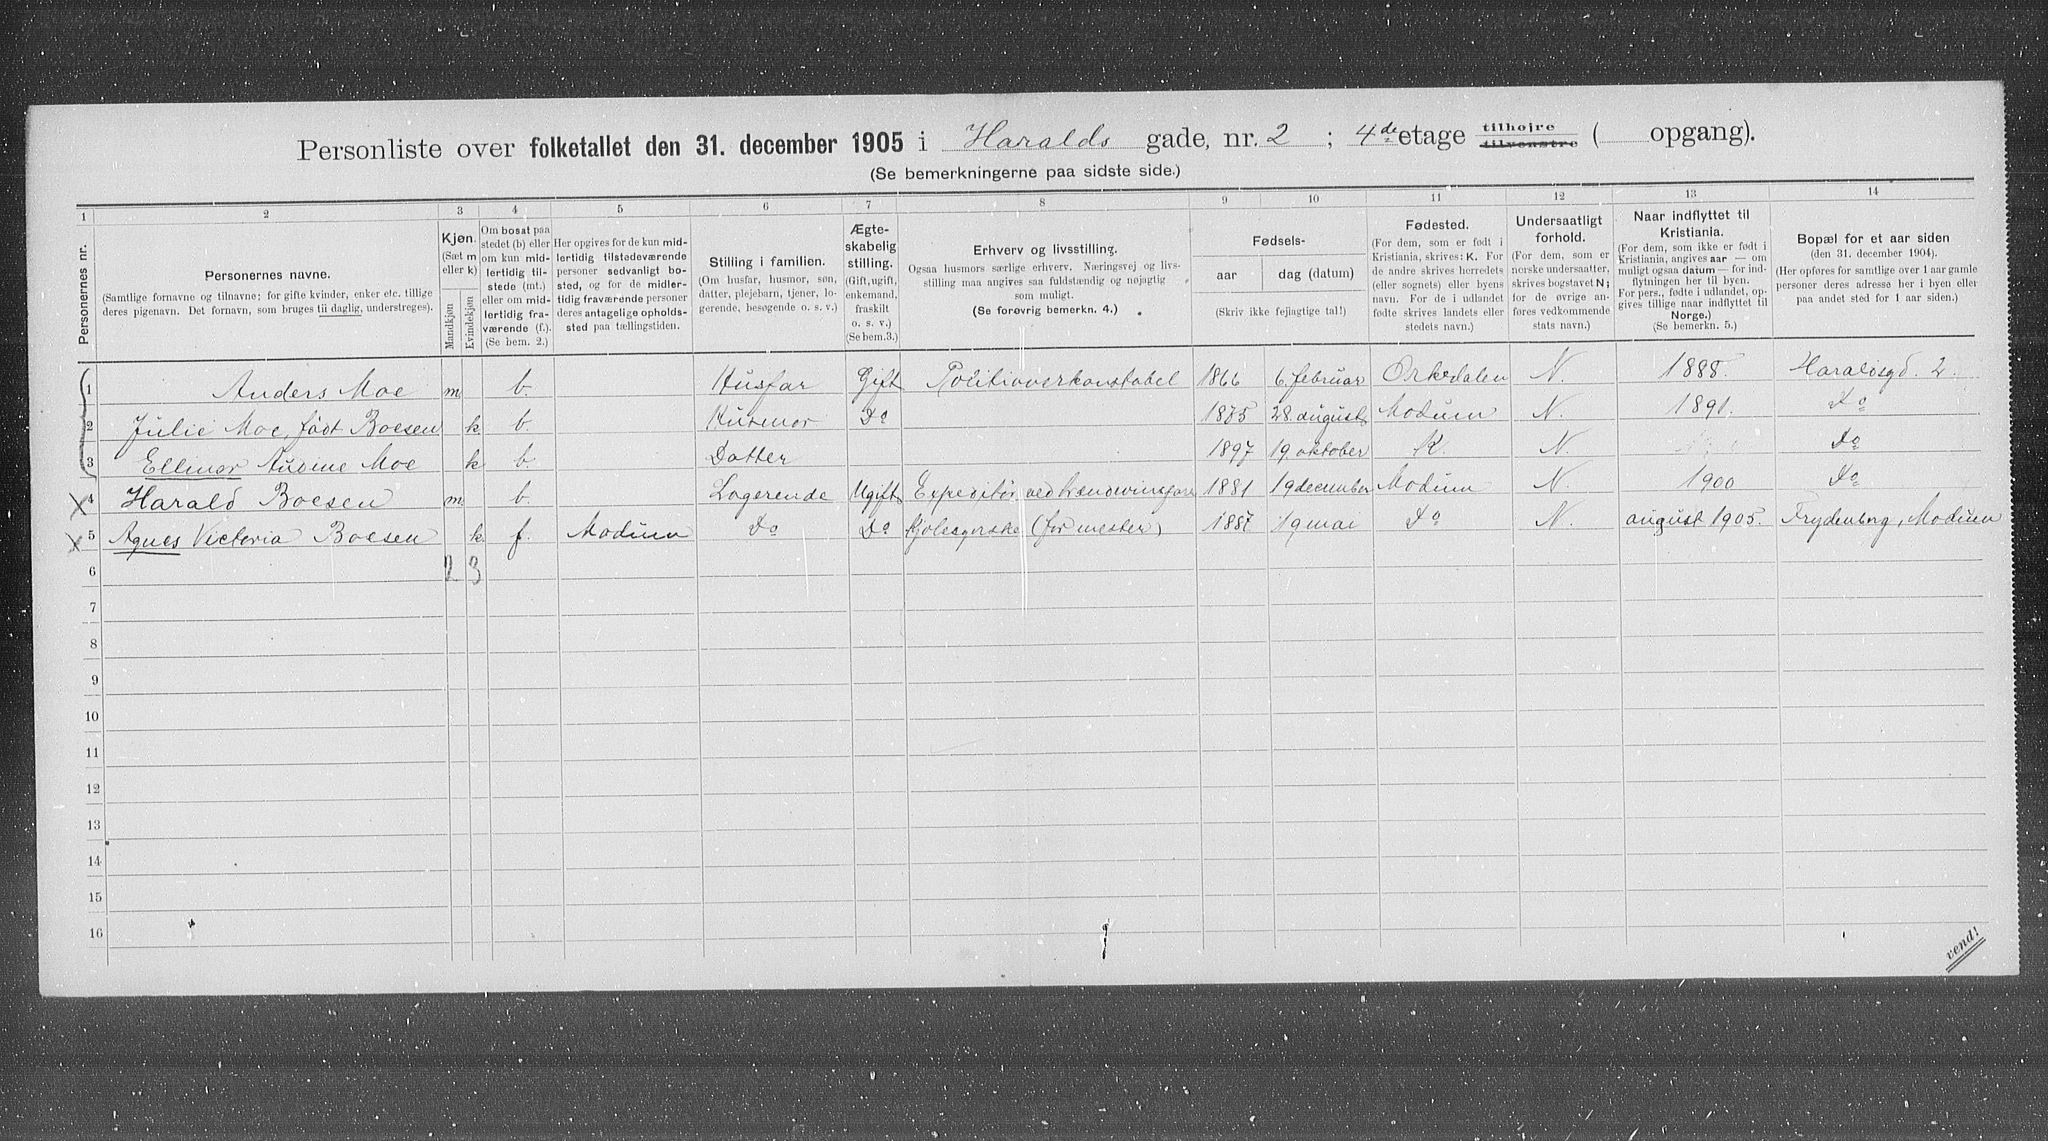 Personliste over folketallet den 31. december 1905 i Haralds gade, nr. 2 ; 4de etage tilhøjre tilvenstre ( opgang).
(Se bemerkningerne paa sidste side.)
1 2 3 4 5 6 7 8 9 10 11 12 13 14
Personernes nr.
Personernes navne.
(Samtlige fornavne og tilnavne; for gifte kvinder, enker etc. tillige
deres pigenavn. Det fornavn, som bruges til daglig, understreges).
Kjøn.
(Sæt m
eller k)
Mandkjøn
Kvindekjøn
Om bosat paa
stedet (b) eller
om kun mid-
lertidig til-
stede (mt.)
eller om mid-
lertidig fra-
værende (f.).
(Se bem. 2.)
Her opgives for de kun mid-
lertidig tilstedeværende
personer sedvanlig bo-
sted, og for de midler-
tidig fraværende personer
deres antagelige opholds-
sted paa tællingstiden.
Stilling i familien.
(Om husfar, husmor, søn,
datter, plejebarn, tjener, lo-
gerende, besøgende o. s. v.)
Ægte-
skabelig
stilling.
(Gift, ugift,
enkemand,
fraskilt
o. s. v.)
(Se bem.3.)
Erhverv og livsstilling.
Ogsaa husmors særlige erhverv. Næringsvej og livs-
stilling maa angives saa fuldstændig og nøjagtig
som muligt.
(Se forøvrig bemerkn. 4.)
Fødsels-
aar dag (datum)
(Skriv ikke fejlagtige tal!)
Fødested.
(For dem, som er født i
Kristiania, skrives: K. For
de andre skrives herredets
(eller sognets) eller byens
navn. For de i udlandet
fødte skrives landets eller
stedets navn.)
Undersaatligt
forhold.
(For dem, som er
norske undersaatter,
skrives bogstavet N;
for de øvrige an-
føres vedkommende
stats navn.)
Naar indflyttet til
Kristiania.
(For dem, som ikke er født i
Kristiania, angives aar — om
muligt ogsaa datum — for ind-
flytningen her til byen.
For pers., fødte i udlandet, op-
gives tillige naar indflyttet til
Norge.)
(Se bemerkn. 5.)
Bopæl for et aar siden
(den 31. december 1904).
(Her opføres for samtlige over 1 aar gamle
personer deres adresse her i byen eller
paa andet sted for 1 aar siden.)
1 Anders Moe m b. Husfar Gift Politioverkonstabel 1866 6 februar Orkedalen N. 1888. Haraldsgd. 2.
2 Julie Moe, født Boesen k b Husmor Do 1875 28 august Modum N. 1891. Do
3 Ellinor Audine Moe k b. Datter 1897 19 oktober K. N. Do
X 4 Harald Boesen m b. Logerende Ugift Expeditør ved 1881 19 december Modum N. 1900 Do
X 5 Agnes Victoria Boesen k f. Modum Do Do Kjolesyerske (for mester) 1887 19 mai Do N. august 1905. Frydenborg, Modum
6 2 3
7
8
9
10
11
12
13
14
15
16
vend!